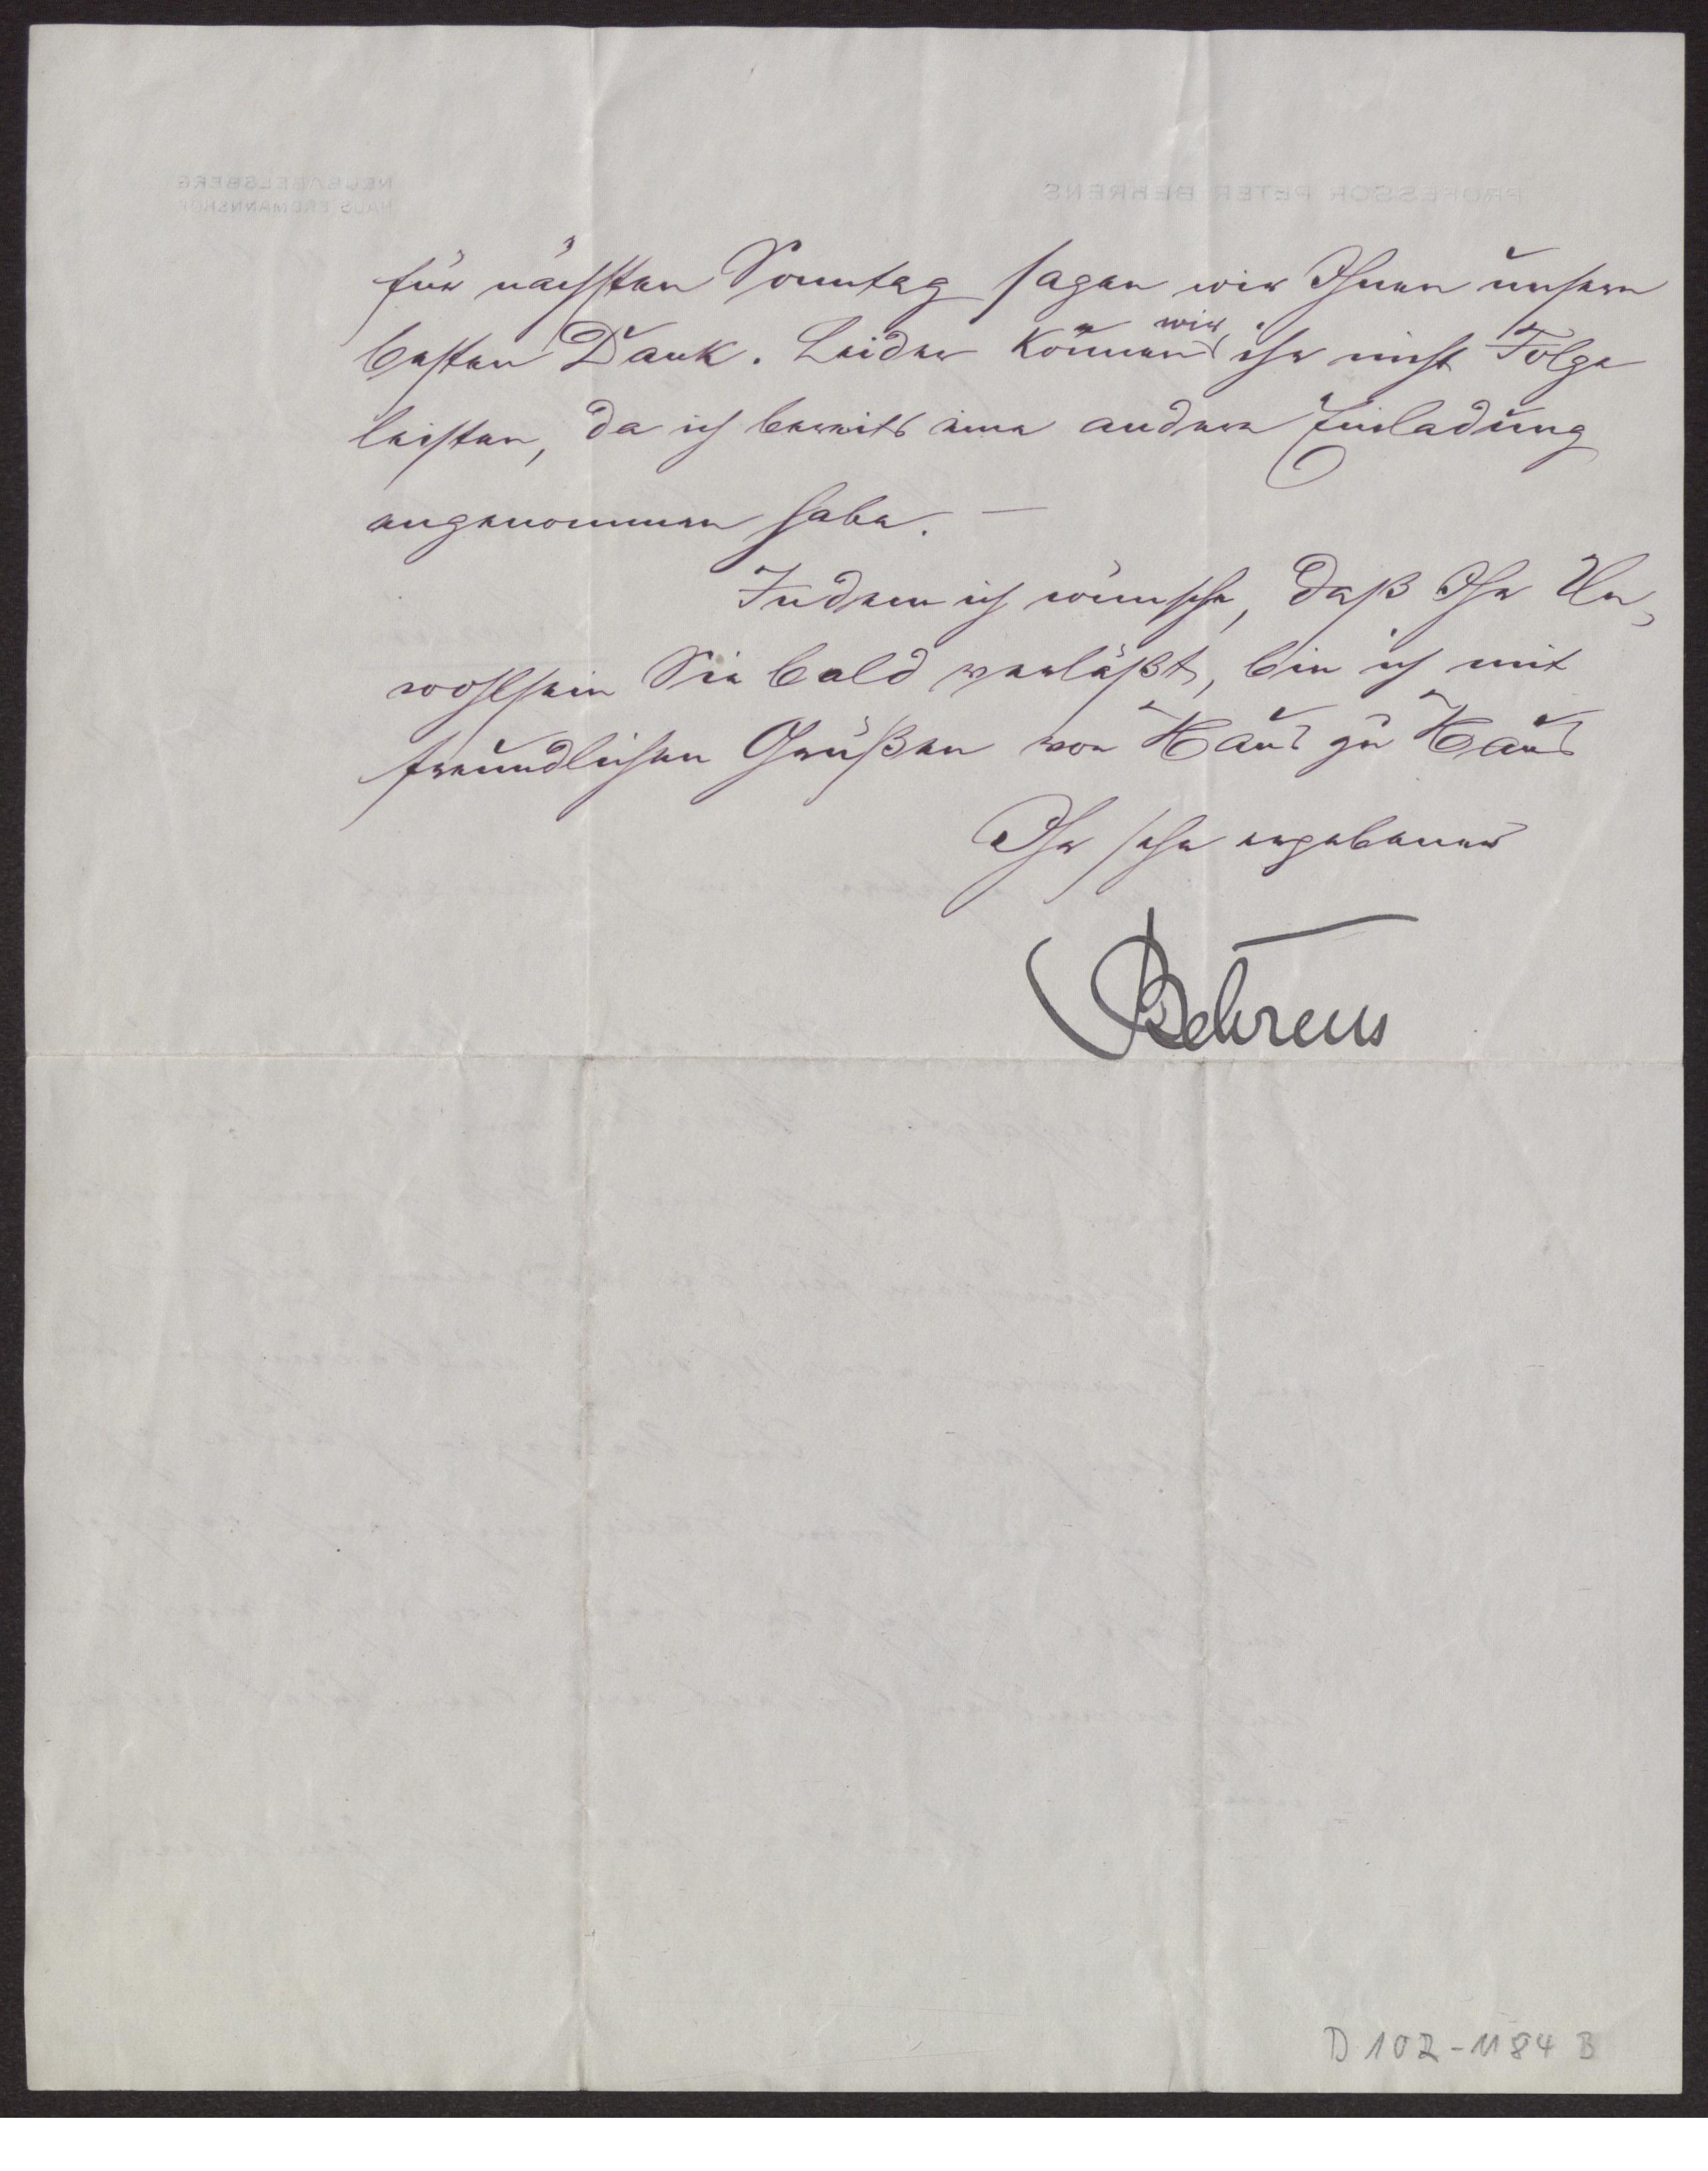 für nächsten Sonntag sagen wir Ihnen unsern
besten Dank. Leider können wir ihr nicht Folge
leisten, da ich bereits eine andere Einladung
angenommen habe. —
Indem ich wünsche, daß Ihr Un-
wohlsein Sie bald verläßt, bin ich mit
freundlichen Grüßen von Haus zu Haus
Ihr sehr ergebener
Behrens
D 102-1184 B